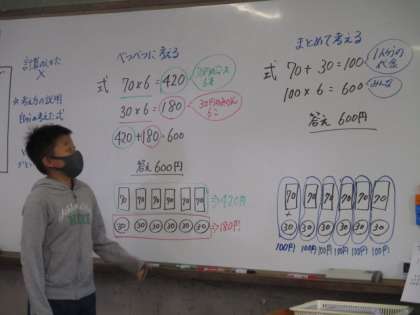 計算のしかた
べつべつに考える
式 70×6=420
30×6=180
420+180=600
答え 600円
70 70 70 70 70 70 ⇒420円
30 30 30 30 30 30 ⇒180円
まとめて考える
式 70+30=100
1人分の代金
100×6=600
みんな
答え 600円
70 70 70 70 70 70
30 30 30 30 30 30
100円 100円 100円 100円 100円 100円